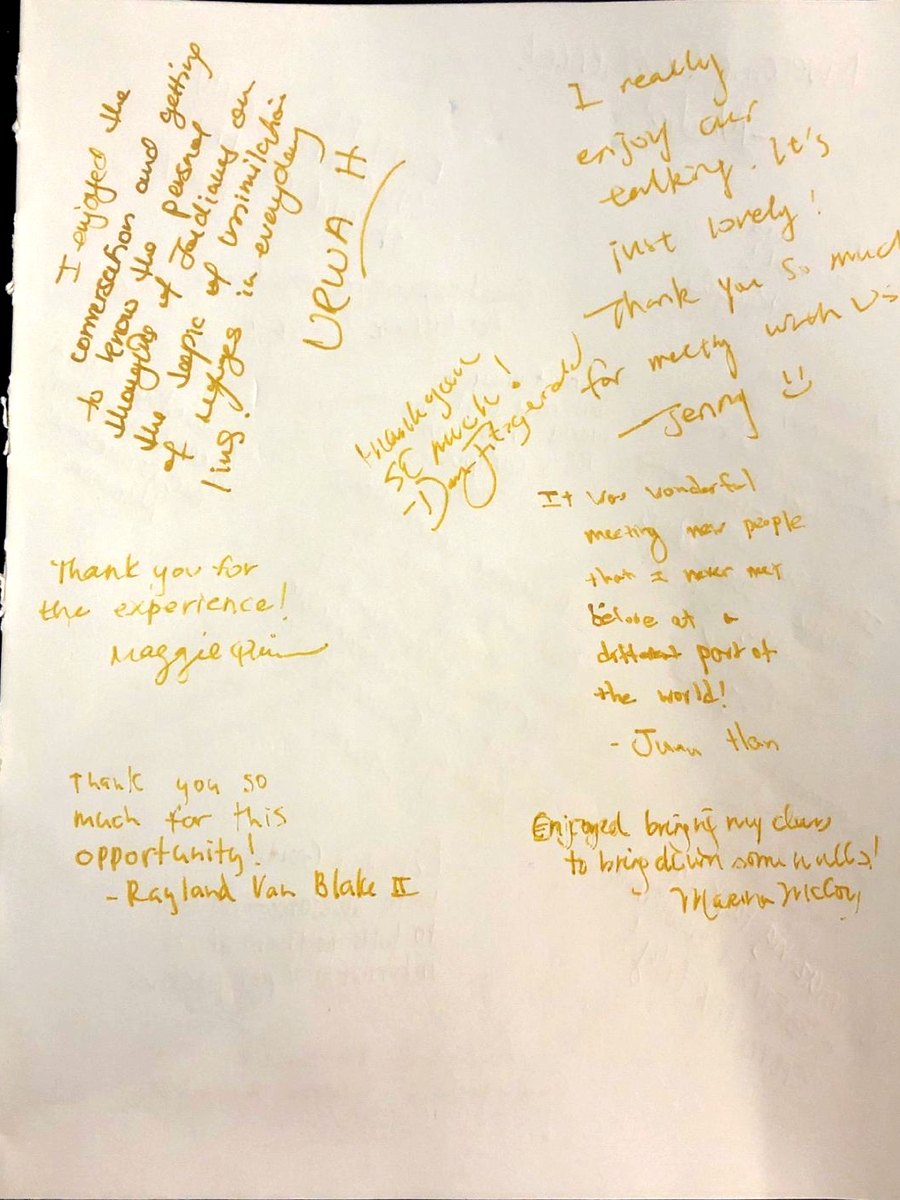 I enjoyed the
conversation and getting
to know the persnal
thoughts of Jordians on
the topic of assimilation
of refuges in everyday
ling.
URWA H
I really
enjoy our
talking. It's
just lovely!
Thank you so much
for meeting with us
—Jenny
thank you
so much!
- Fitzgerald
It was wonderful
meeting new people
that I never met
before at a
different part of
the world!
- Han
Thank you for
the experience!
Maggie
Thank you so
much for this
opportunity!
- Rayland Van Blake II
Enjoyed bringing my class
to bring down some walls!
- Marina McCoy